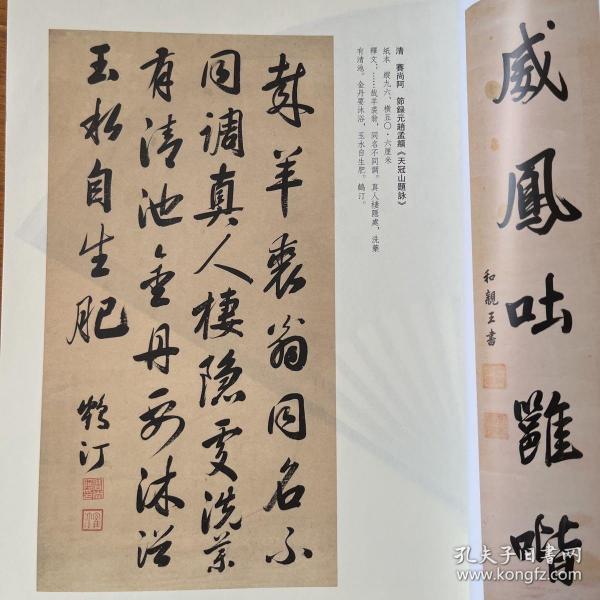 威鳳吐雝喈
和親王書
清 賽尚阿 節錄元趙孟頫《天冠山題詠》
紙本 縱九六、橫五〇·六厘米
釋文：……哉羊裘翁，同名不同調。真人棲隱處，洗藥
有清池。金丹要沐浴，玉水自生肥。鶴汀。
哉羊裘翁同名不
同調真人棲隱處洗藥
有清池金丹要沐浴
玉水自生肥
鶴汀
孔夫子旧书网
www.kongfz.com